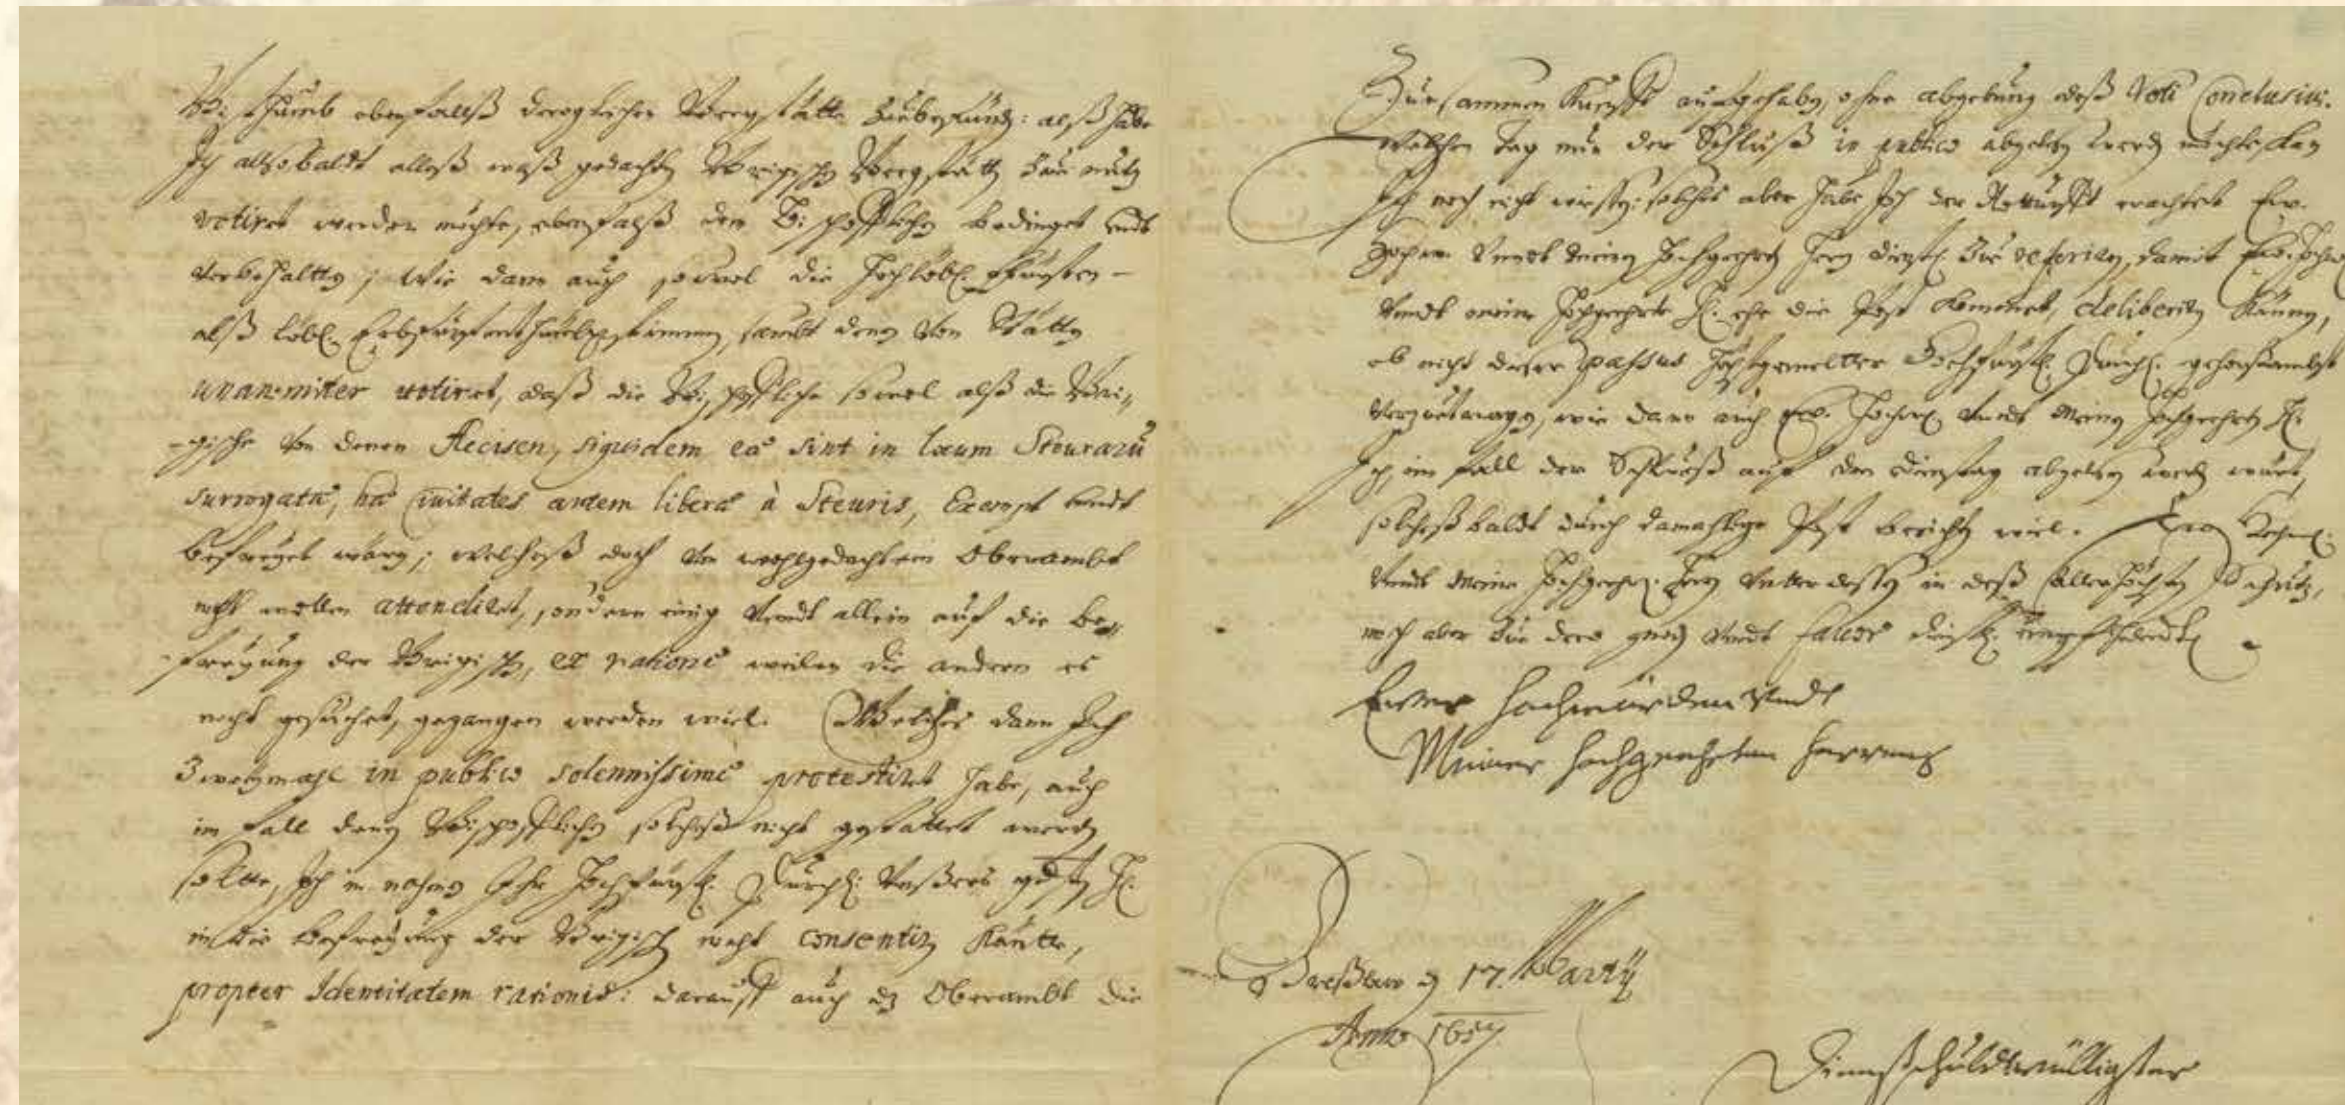 Bistthumb ebenfallß dergleichen Bergstätte zubefünd: alß habe
Ich allsobaldt alleß waß gedachten Briegischen Bergstätten zu nutz
votiret werden möchte, ebenfalß den Bischofflichen bedinget undt
vorbehalten; Wie dann auch sowol die Hochlöbl. Fürsten-
alß löbl. Erbfürstenthumbsstimmen, sambt denen von Stätten
unanimiter votiret, daß die Bischoffliche sowol alß die Brie„
-gische von denen Accisen, siquidem eae sint in locum Steurarū
surrogatae, hae Civitates autem liberae à Steuris, Exempt undt
befreyet wären; welcheß doch von wohlgedachtem Oberambt
nicht wollen attendiret, sondern einig undt allein auf die be„
-freyung der Briegischen, ex ratione weilen die andern es
nicht gesuchet, gegangen werden wiel. Welches dann Ich
Zweymahl in publico solennissime protestiret habe, auch
im fall denen Bischofflichen solcheß nicht gestattet werden
solte, Ich in nahmen Ihr Hochfürstl. Durchl: Unßers gdsten H.
in die befreyung der Briegischen nicht consentiren könte,
propter Identitatem rationis: darauff auch dz Oberambt die
Zusammen Kunfft aufgehaben, ohne abgebung deß Voti Conclusivi.
Welchen tag nun der Schluß in publico abgelesen werden möchte, kan
Ich noch nicht wissen: solches aber habe Ich der Notturfft erachtet Ew.
Hochw. Undt Meinen Hochgeehrten Herren dienstl. zu referiren, damit Ew. Hochw
Undt meine Hochgeehrte H. ehe die Post kommet, deliberiren können,
ob nicht dieser passus Höchstgemelter Hochfürstl. Durchl. gehorsambst
vorzutragen, wie dann auch Ew. Hochw. Undt Meinen Hochgeehrten H.
Ich, im fall der Schluß auf den Dienstag abgelesen werden würde,
solcheß baldt durch damahlige Post berichten wiel. Ew Hochw.
Undt Meine Hochgeehrt. Herren Unterdessen in deß Allerhöchsten Schutz,
mich aber zu dero gnad Undt favor dienstl. empfehlendt
Ewer Hochwürden Undt
Meiner Hochgeehrten Herren
Breßlaw d 17. Martij
Anno 1657
Dienstschuldtwilligster